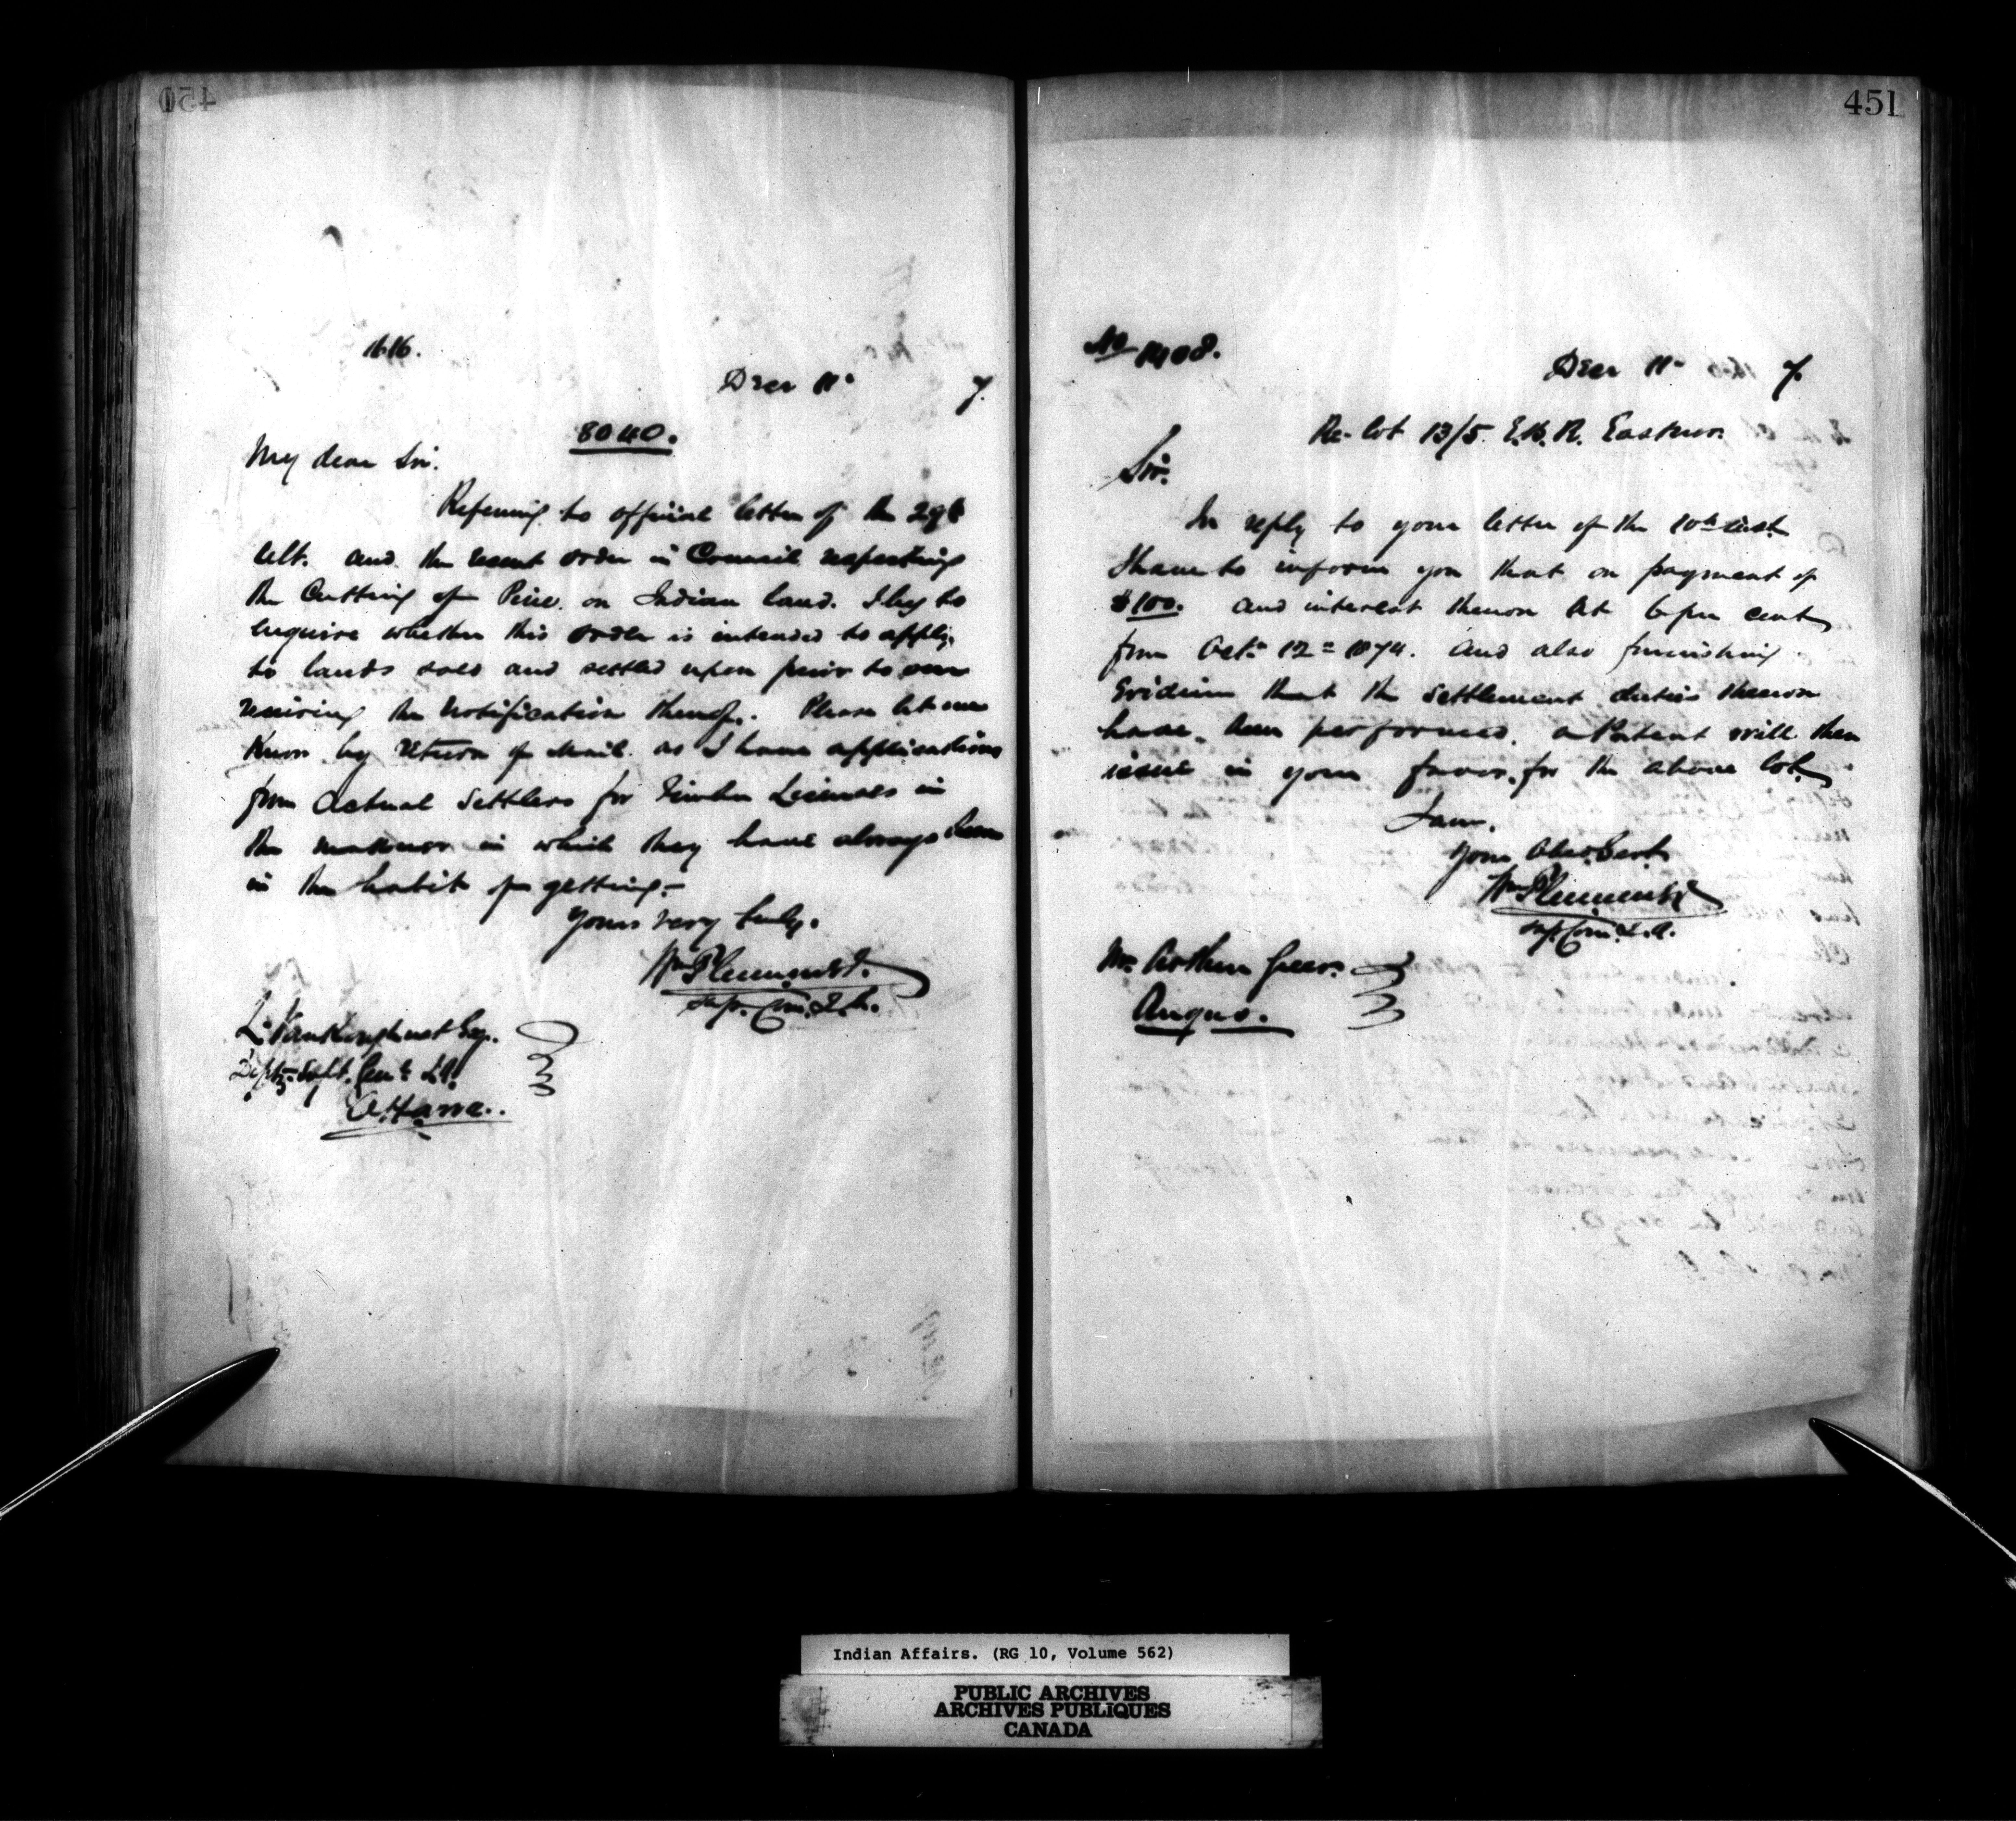 450
1616.
Decr 11th 7.
8040.
My dear Sir.
Referring to official letter of the 29th
ult. and the recent order in Council respecting
the Cutting of Pine on Indian land. I beg to
enquire whether this order is intended to apply
to lands sold and settled upon prior to our
receiving the notification thereof. Please let me
Know by return of mail as I have applications
from actual Settlers for Timber Licenses in
the manner in which they have always been
in the habit of getting.-
Yours very truly.
Wm Plummer
Sup. Com. I.A.
L. Vankoughnet Esq.
Depty. Supt. Genl. I.A.
Ottawa.
451
No 1408.
Decr 11th 7.
Re- lot 13/5. E.B.R. Eastnor.
Sir.
In reply to your letter of the 10th inst.
I have to inform you that on payment of
$100. and interest thereon at 6 per cent
from Oct. 12th 1874. and also furnishing
Evidence that the Settlement duties thereon
have been performed. a Patent will then
issue in your favor, for the above lot.
I am.
Your Obed. Sert
Wm Plummer
Sup. Com. I.A.
Mr. Arthur Greer.
Angus.
Indian Affairs. (RG 10, Volume 562)
PUBLIC ARCHIVES
ARCHIVES PUBLIQUES
CANADA